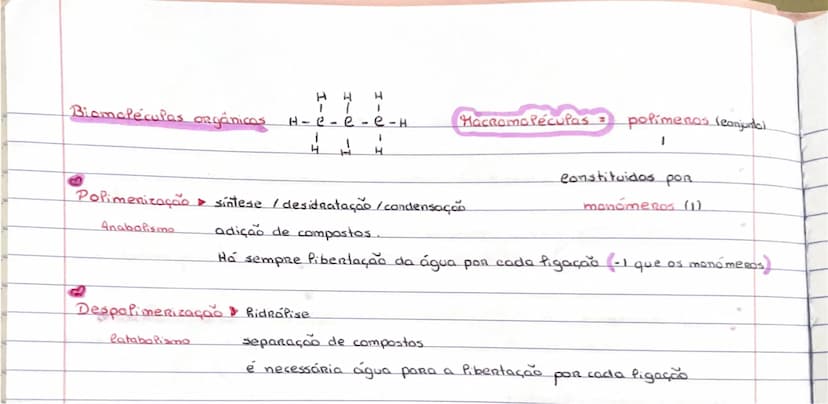 H H H
| | |
Biomoléculas orgânicas H - C - C - C - H Macromoléculas = polímeros (conjunto)
| | | |
H H H
constituidos por
Polimerização ▸ síntese / desidratação / condensação monómeros (1)
Anabolismo adição de compostos.
Há sempre libertação da água por cada ligação (-1 que os monómeros)
Despolimerização ▸ hidrólise
Catabolismo separação de compostos
é necessária água para a libertação por cada ligação